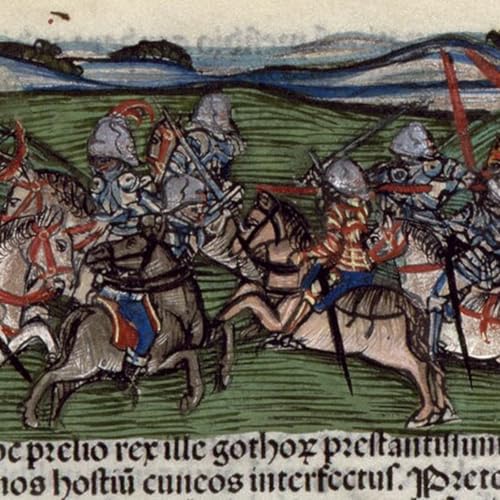 prelio rex ille gothoꝝ prestantissim
nos hostiū cuneos interfectus. Prete